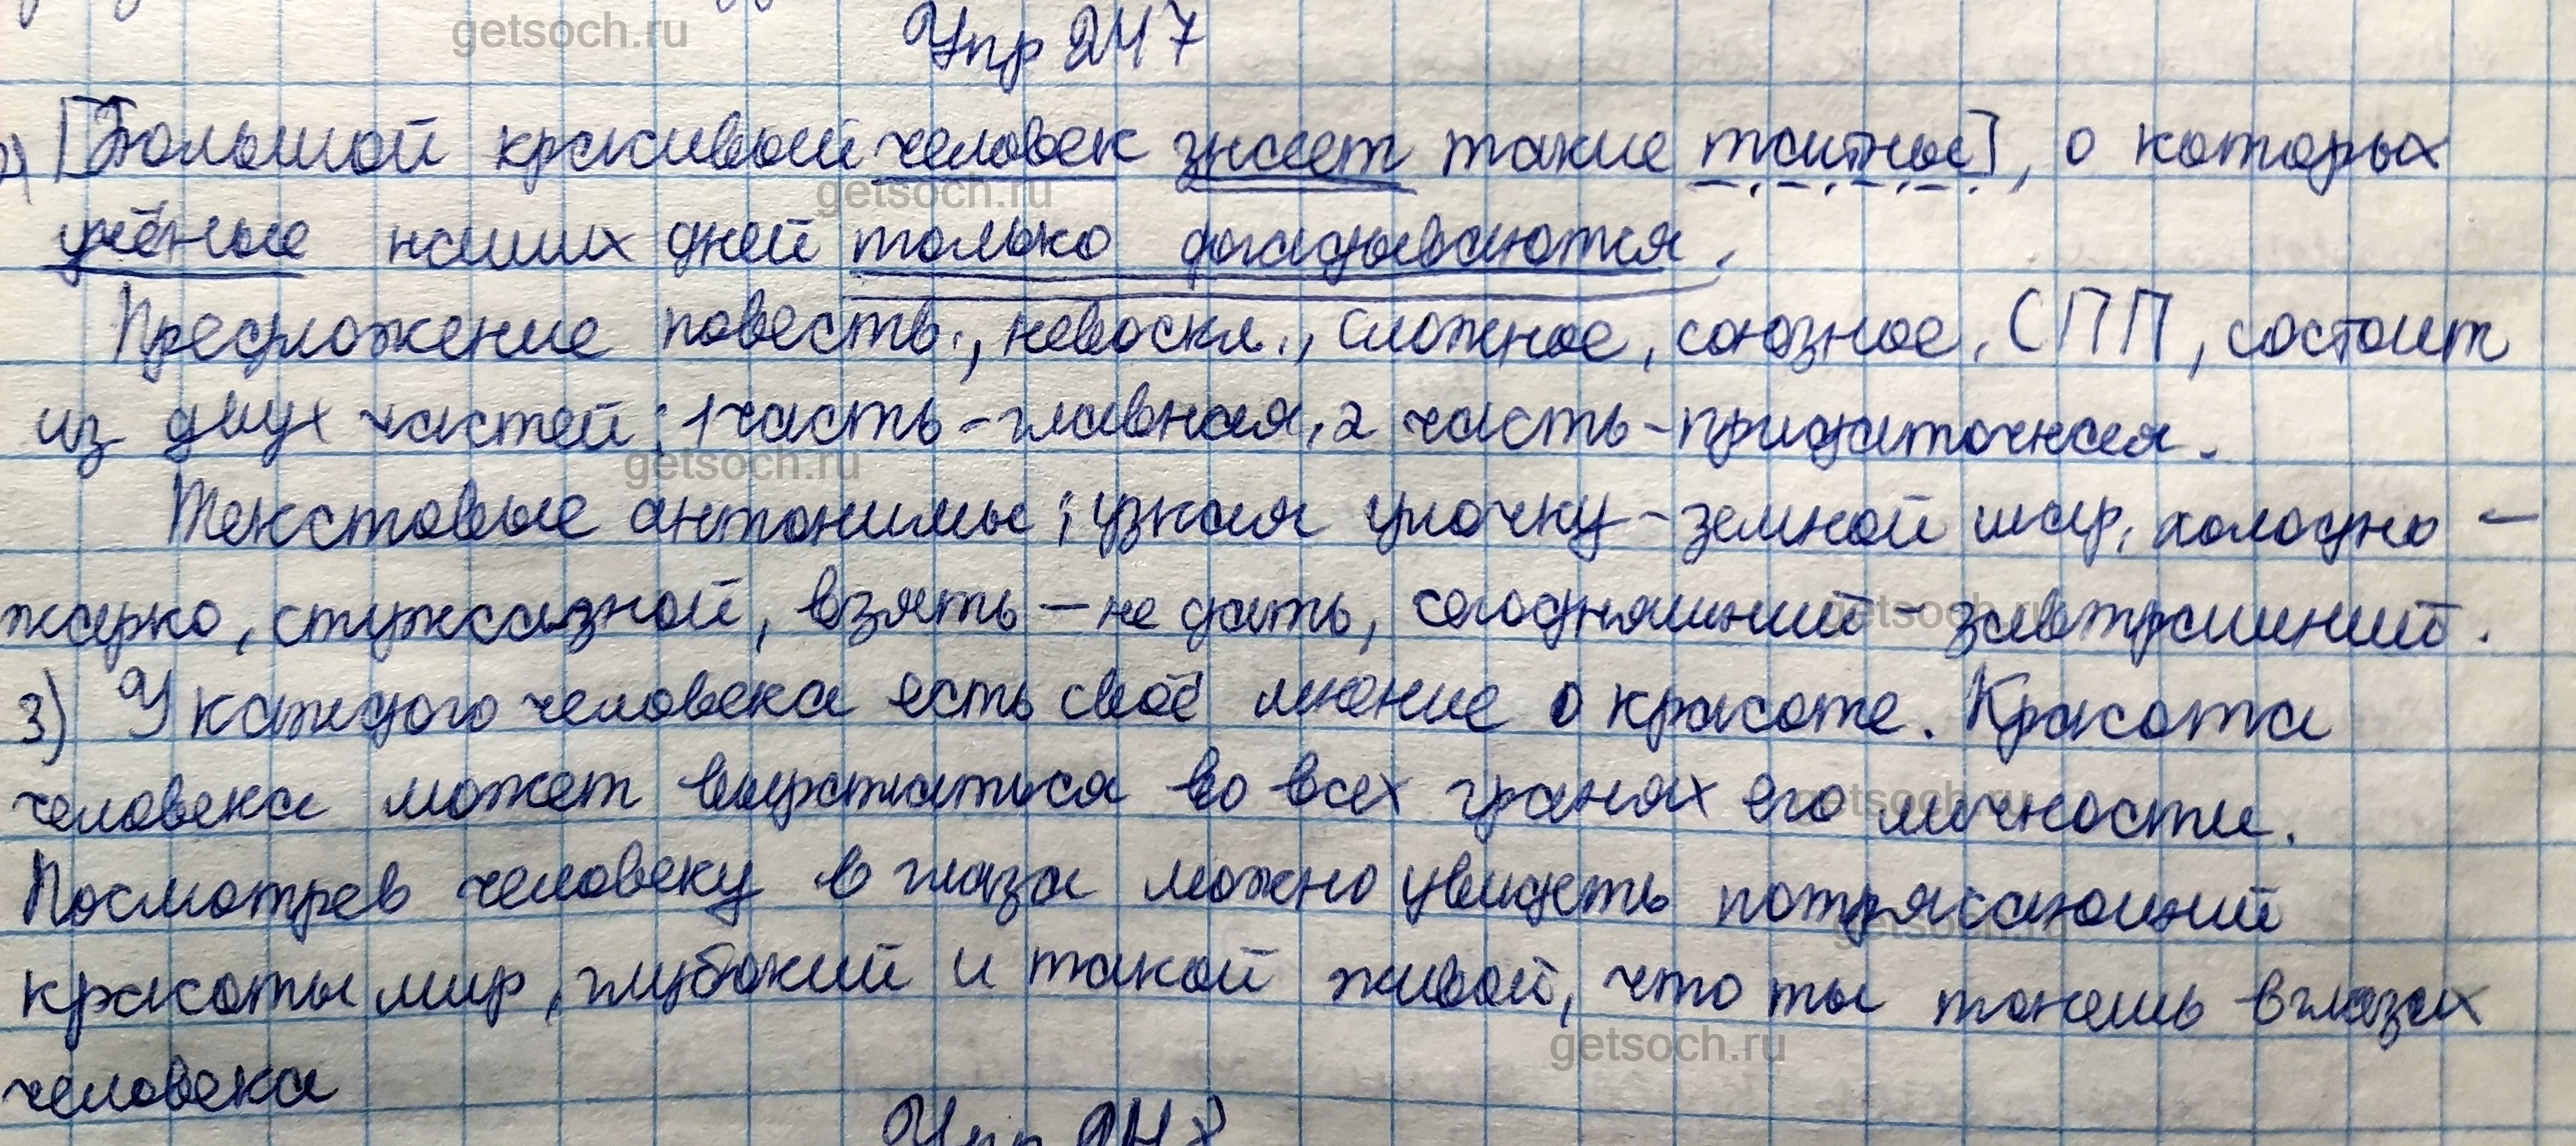 Упр 247
2) [Большой красивый человек знает такие тайны], о которых
учёные наших дней только догадываются.
Предложение повеств., невоскл., сложное, союзное, СПП, состоит
из двух частей: 1 часть - главная, 2 часть - придаточная.
Текстовые антонимы: узкая улочку - земной шар, холодно -
жарко, стужа зной, взять - не дать, сегодняшний - завтрашний.
3) У каждого человека есть своё мнение о красоте. Красота
человека может выражаться во всех гранях его личности.
Посмотрев человеку в глаза можно увидеть потрясающий
красоты мир, глубокий и такой живой, что ты тонешь в глазах
человека
Упр 248
getsoch.ru
getsoch.ru
getsoch.ru
getsoch.ru
getsoch.ru
getsoch.ru
getsoch.ru